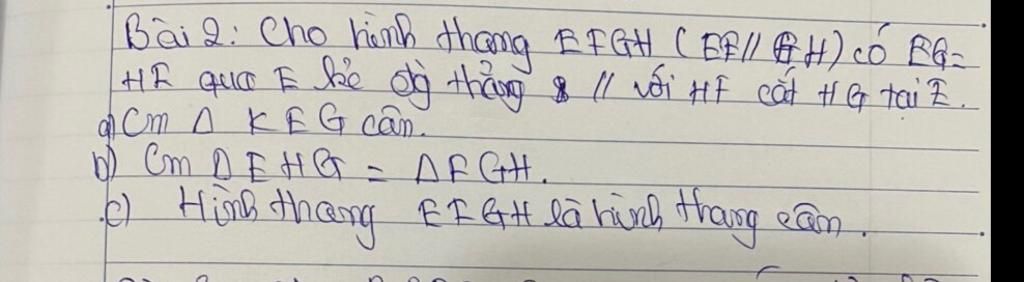 Bài 2: Cho hình thang EFGH (EF // GH) có EG =
HF qua E kẻ đg thẳng // với HF cắt HG tại E.
a) Cm Δ KEG cân.
b) Cm Δ EHG = Δ FGH.
c) Hình thang EFGH là hình thang cân.